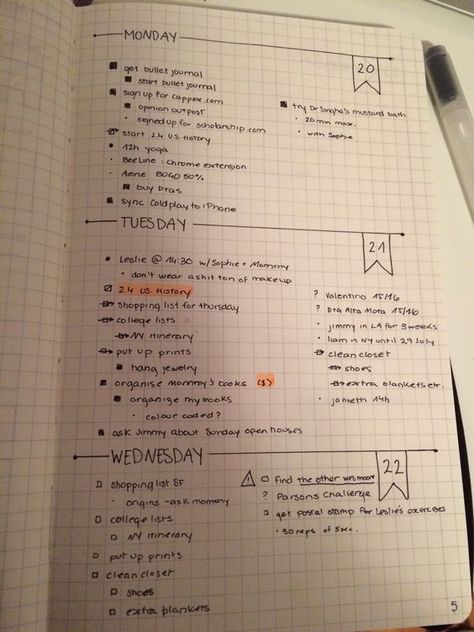 MONDAY
20
get bullet journal
start bullet journal
sign up for cappex.com
opinion outpost
signed up for scholarship.com
start 2.4 U.S. History
12h yoga
BeeLine : Chrome extension
Aerie BOGO 50%
buy bras
sync Coldplay to iPhone
try Dr Singha's mustard bath
20 min max.
with Sophie
TUESDAY
21
Leslie @ 14:30 w/Sophie + Mommy
don't wear a shit ton of makeup
2.4 US. History
shopping list for thursday
college lists
NY itinerary
put up prints
hang jewelry
organise Mommy's books ($)
organize my books
colour coded?
ask Jimmy about Sunday open houses
? Valentino 15/16
? DTG Alta Moda 15/16
jimmy in LA for 3 weeks
liam in NY until 29 July
clean closet
shoes
extra blankets etc.
janneth 14h
WEDNESDAY
22
shopping list SF
origins - ask mommy
college lists
NY itinerary
put up prints
clean closet
shoes
extra blankets
! find the other wes moore
? Parsons Challenge
get postal stamp for Leslie's exercises
30 reps of 5sec.
5